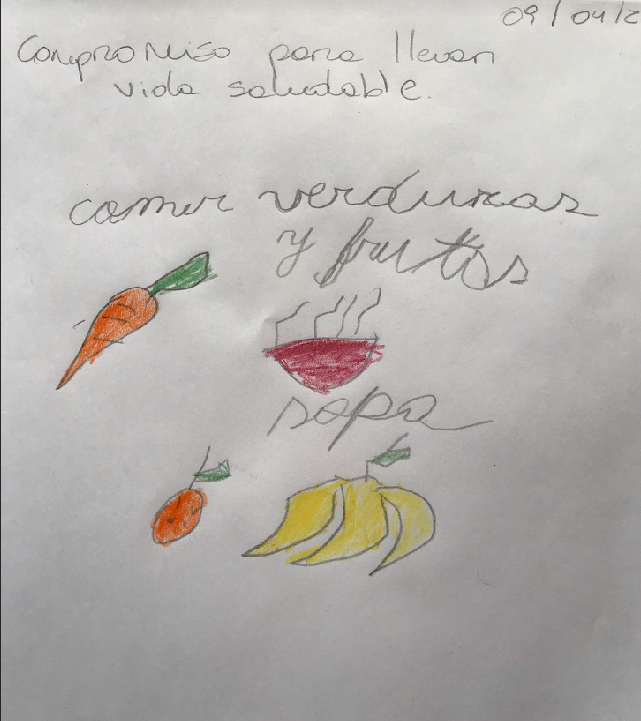 09/04/2
Compromiso para llevar
vida saludable.
comer verduras
y frutas
sopa